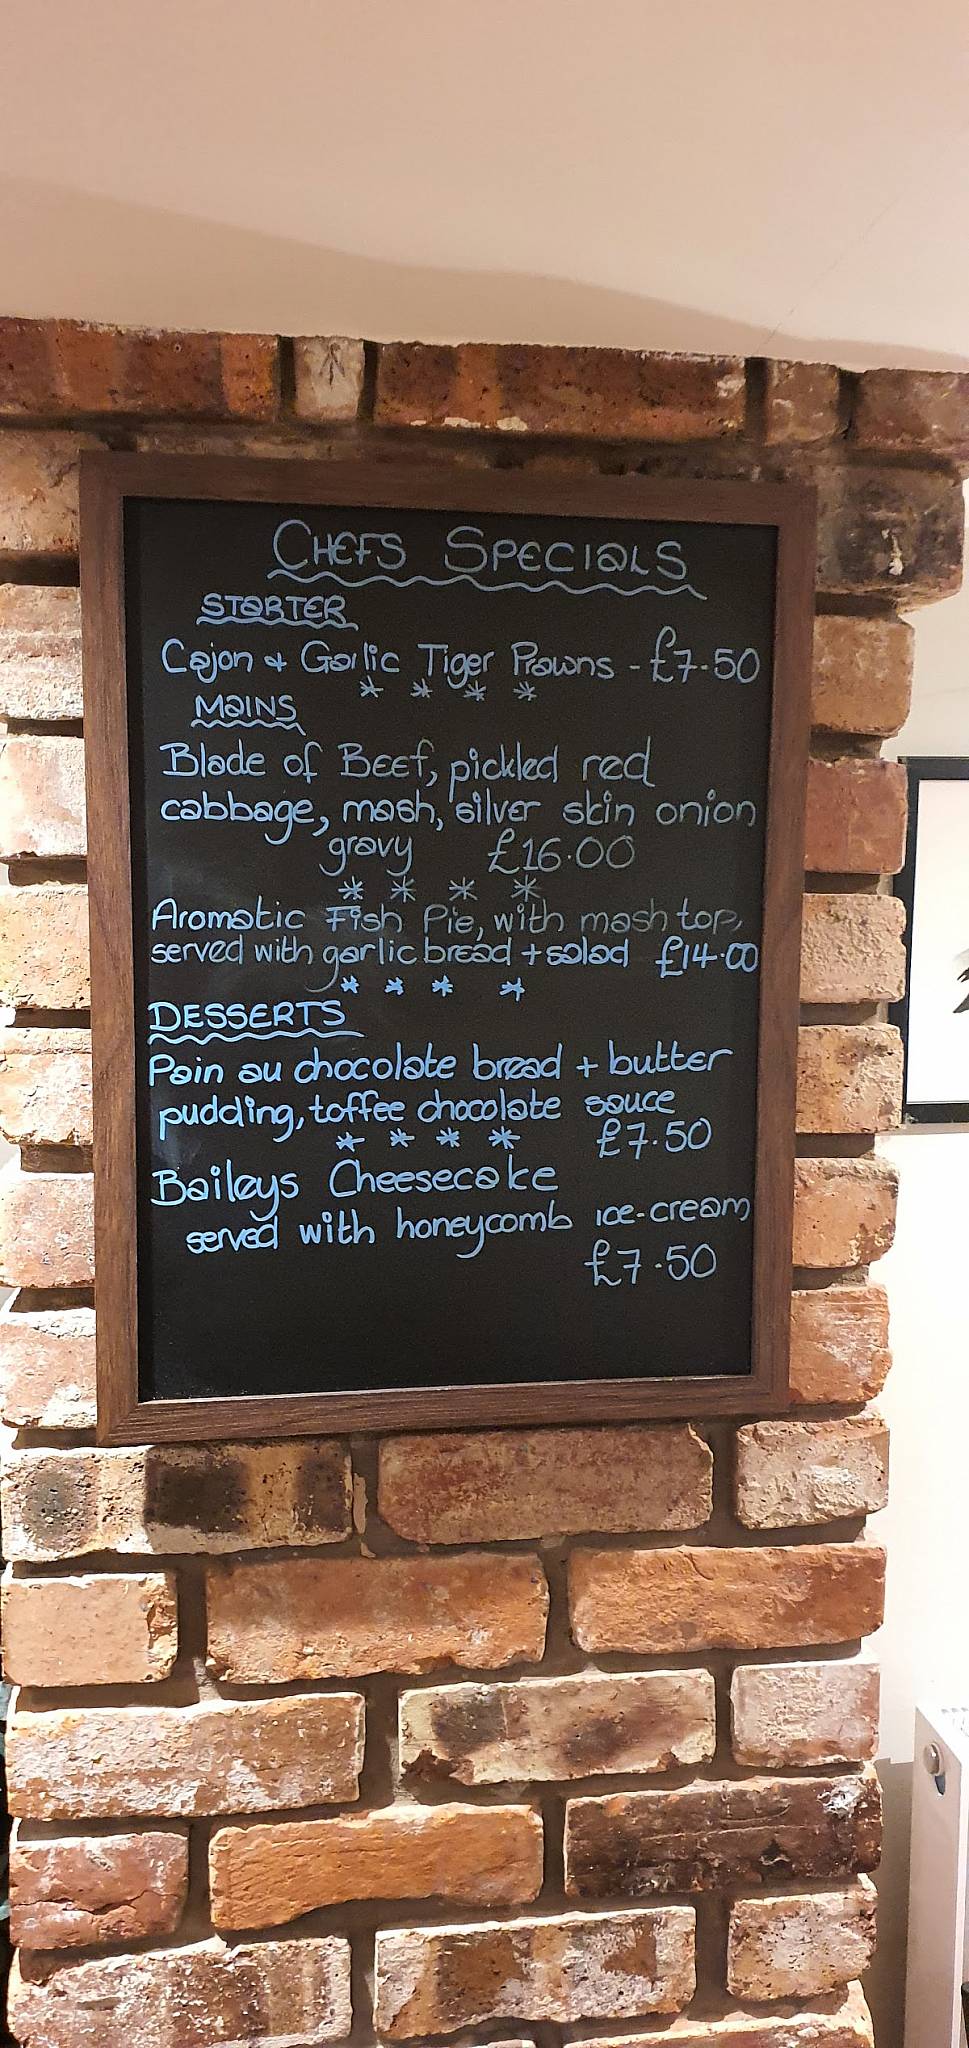 CHEFS SPECIALS
STARTER
Cajon + Garlic Tiger Prawns - £7.50
* * * *
MAINS
Blade of Beef, pickled red
cabbage, mash, silver skin onion
gravy £16.00
* * * *
Aromatic Fish Pie, with mash top,
served with garlic bread + salad £14.00
* * * *
DESSERTS
Pain au chocolate bread + butter
pudding, toffee chocolate sauce
* * * * £7.50
Baileys Cheesecake
served with honeycomb ice-cream
£7.50